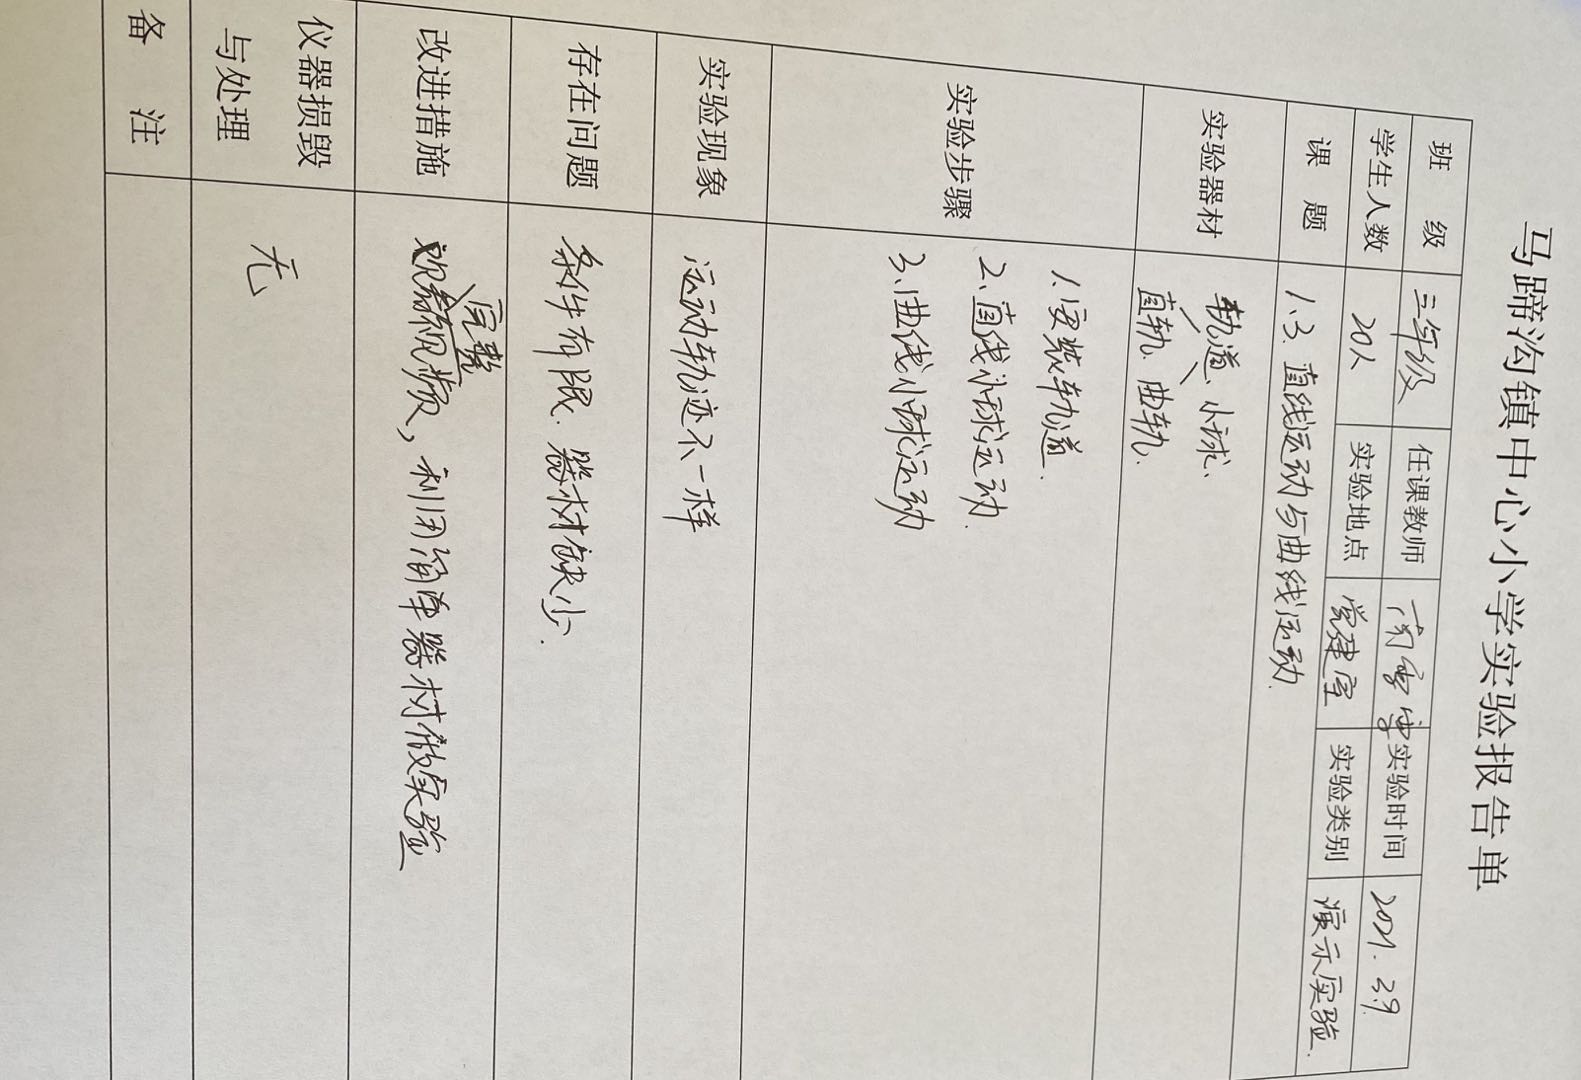 马蹄沟镇中心小学实验报告单
班 级 三年级 任课教师 实验时间 2021.3.9
学生人数 20人 实验地点 党建室 实验类别 演示实验.
课 题 1.3、直线运动与曲线运动.
实验器材 轨道、小球、
直轨、曲轨.
实验步骤 1、安装轨道.
2、直线小球运动.
3、曲线小球运动
实验现象 运动轨迹不一样
存在问题 条件有限.器材缺少.
完整
改进措施 观看视频，利用简单器材做实验
仪器损毁
与处理 无
备 注